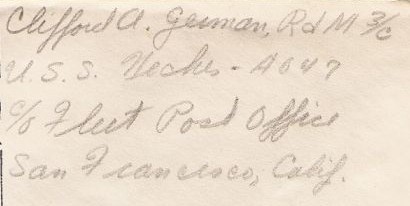 Clifford A. German, RdM 3/c
U.S.S. Neches - AO47
c/o Fleet Post Office
San Francisco, Calif.